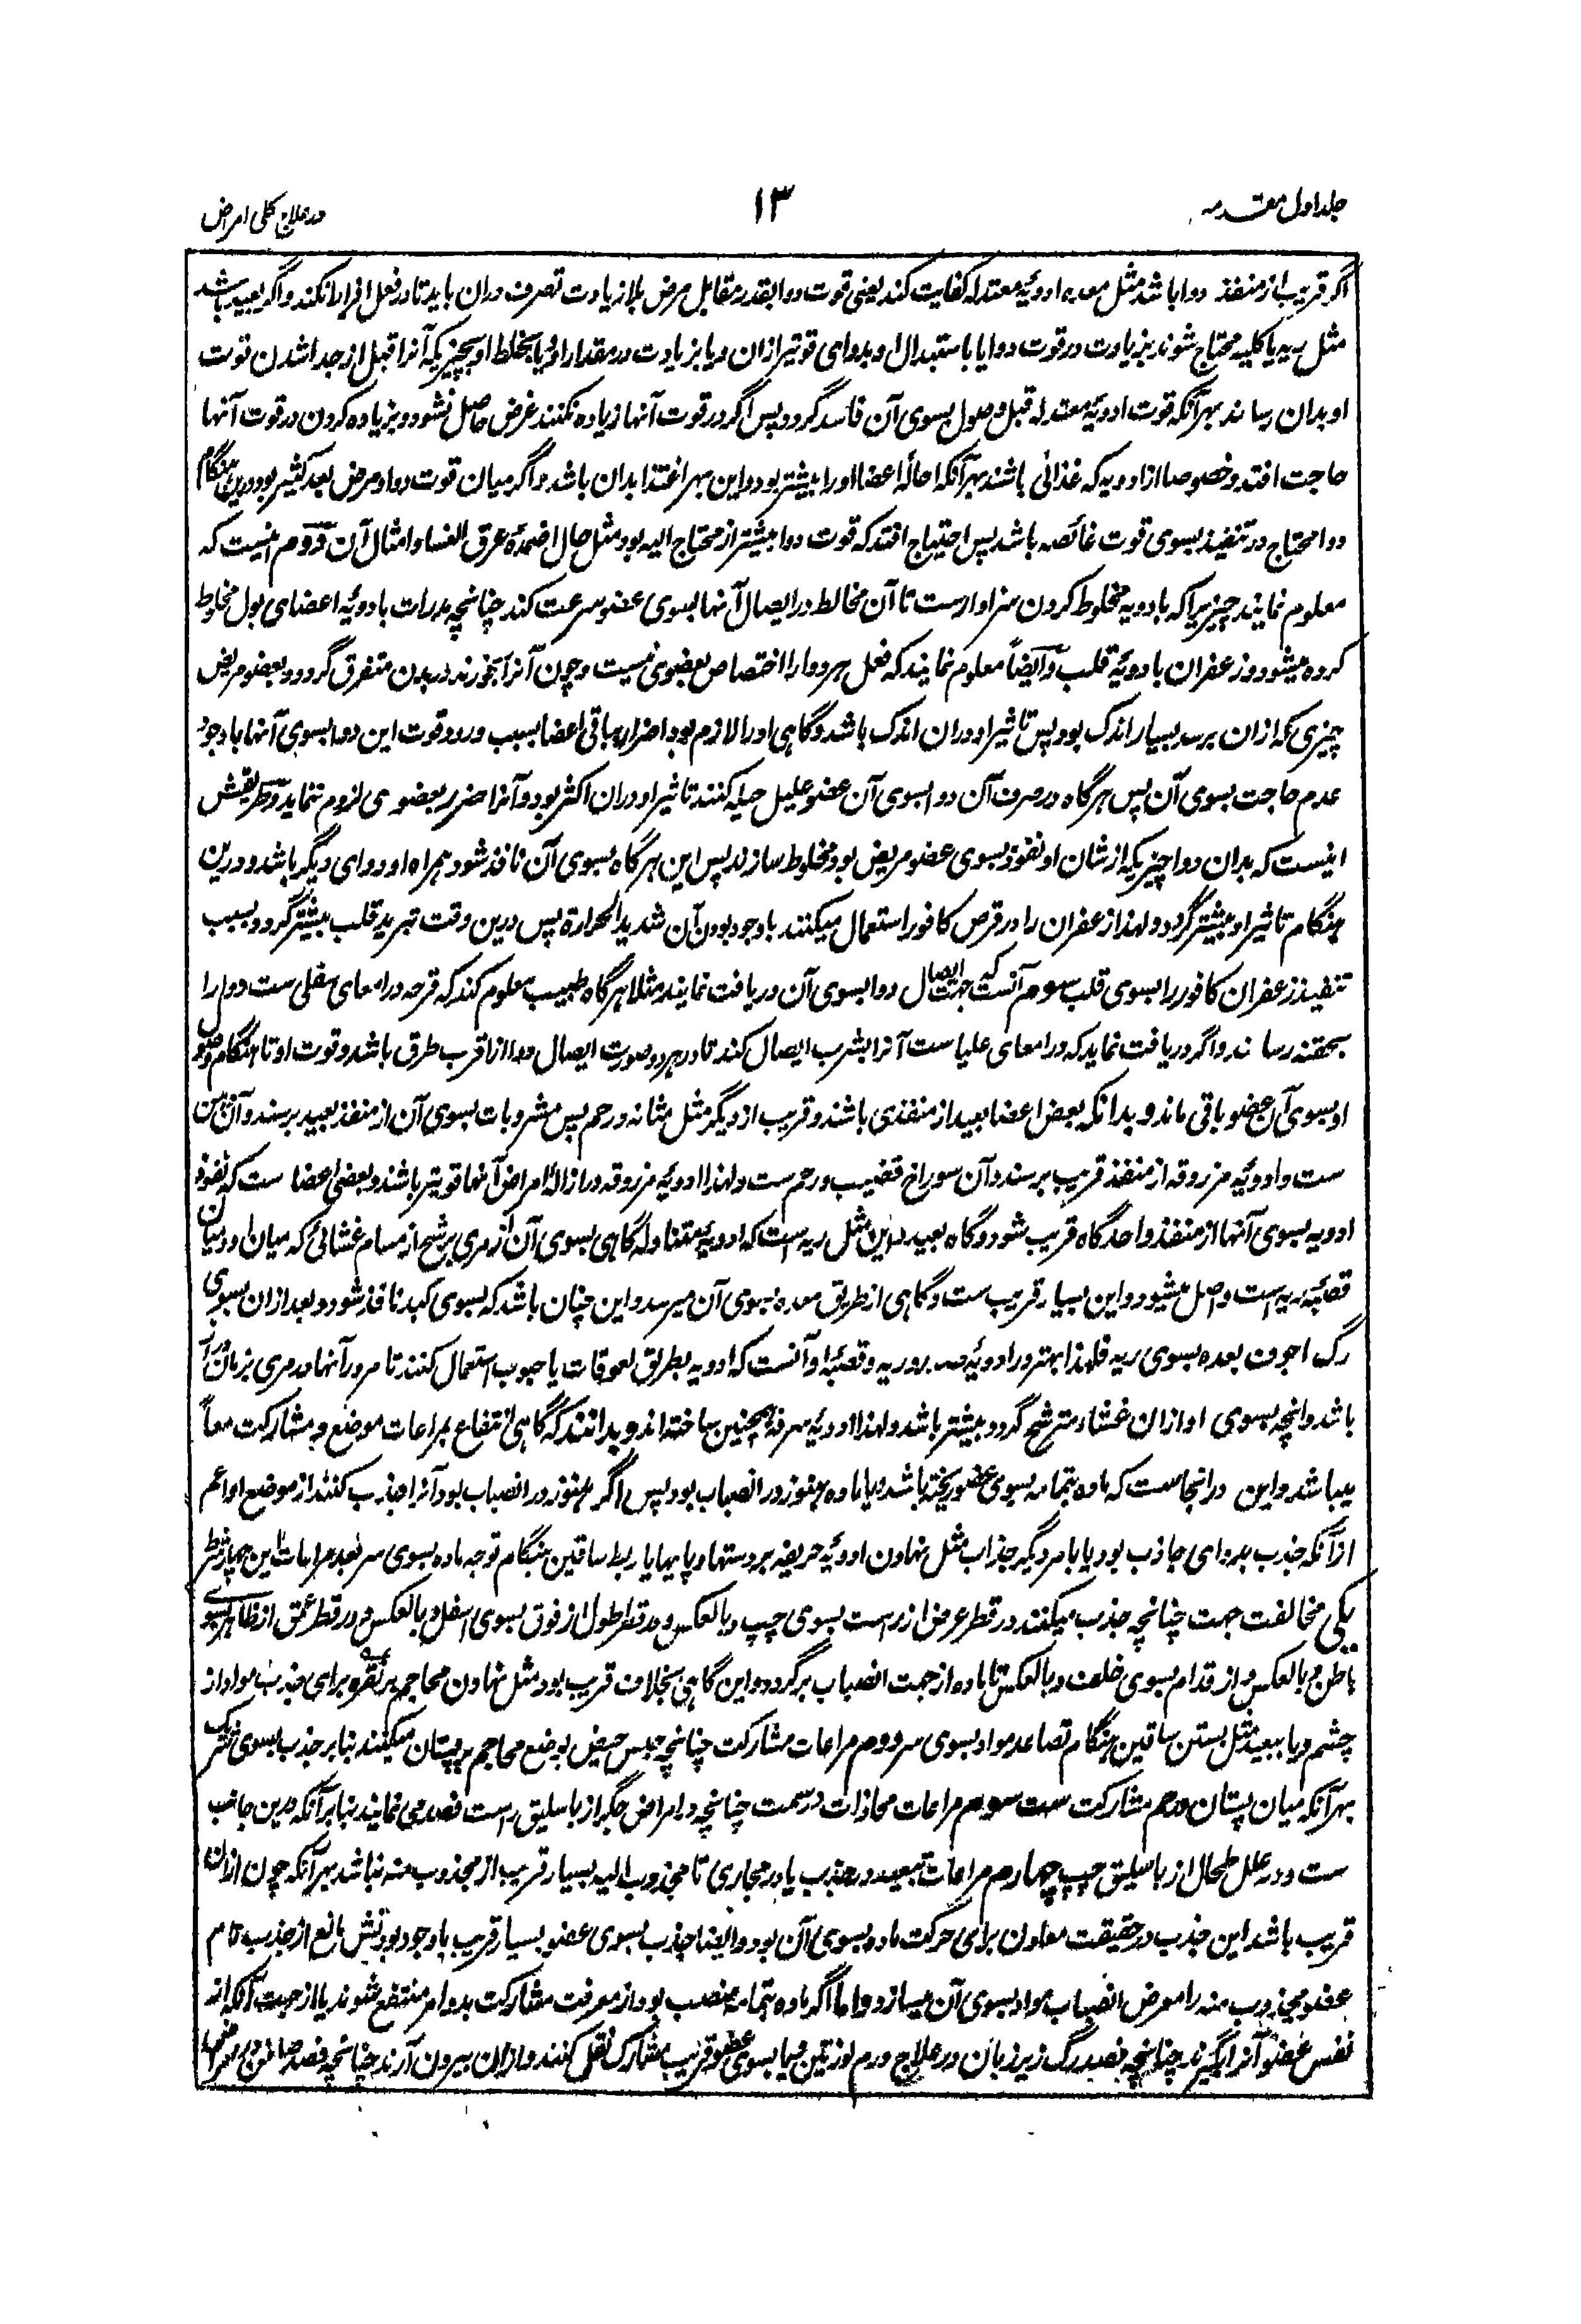 جلد اول مقدمه
۱۳
در علاج کلی امراض
اگر قریب از منفذ دوا باشد مثل معده ادویهٔ معتدله کفایت کند یعنی قوت دوا بقدر مقابل مرض بلا زیادت تصرف دران باید تا در فعل افراط نکند و اگر بعید باشد
مثل ریه یا کلیه محتاج شوند بزیادت در قوت دوا یا باستبدال او بدوای قویتر ازان و یا بزیادت در مقدار او و یا بخلط او بچیزیکه آنرا قبل از جدا شدن قوت
او بدان رساند بهر آنکه قوت ادویهٔ معتدله قبل وصول بسوی آن فاسد گردد پس اگر در قوت آنها زیاده نکنند غرض حاصل نشود و بزیاده کردن در قوت آنها
حاجت افتد و خصوصا از ادویه که غذائی باشند بهر آنکه احالهٔ اعضا او را بیشتر بود و این بهر اغتذا بدان باشد و اگر میان قوت دوا و مرض بعد کثیر بود درین هنگام
دوا محتاج در تنفیذ بسوی قوت غائصه باشد پس احتیاج افتد که قوت دوا بیشتر از محتاج الیه بود مثل حال اضمدهٔ عرق النسا و امثال آن دوم اینست که
معلوم نمایند چیزیرا که بادویه مخلوط کردن سزاوارست تا آن مخالط در ایصال آنها بسوی عضو سرعت کند چنانچه مدرات بادویهٔ اعضای بول مخلوط
کرده میشود و زعفران بادویهٔ قلب و ایضاً معلوم نمایند که فعل هر دوا را اختصاص بعضوی نیست و چون آنرا بخورند در بدن متفرق گردد و بعضو مریض
چیزی که ازان برسد بسیار اندک بود پس تاثیر او دران اندک باشد و گاهی او را لازم بود اضرار بباقی اعضا بسبب ورود قوت این دوا بسوی آنها با وجود
عدم حاجت بسوی آن پس هرگاه در صرف آن دوا بسوی آن عضو علیل حیله کنند تاثیر او دران اکثر بود و آنرا ضرر بعضوی لزوم ننماید و طریقش
اینست که بدان دوا چیزیکه از شان او نفوذ بسوی عضو مریض بود مخلوط سازند پس این هرگاه بسوی آن نافذ شود همراه او دوای دیگر باشد و درین
هنگام تاثیر او بیشتر گردد و لهذا زعفران را در قرص کافور استعمال میکنند با وجود بودن آن شدید الحرارة پس درین وقت تبرید قلب بیشتر گردد بسبب
تنفیذ زعفران کافور را بسوی قلب سوم آنست که جهت ایصال دوا بسوی آن دریافت نمایند مثلا هرگاه طبیب معلوم کند که قرحه در امعای سفلی ست دوا را
بحقنه رساند و اگر دریافت نماید که در امعای علیا ست آنرا بشرب ایصال کند تا در هر دو صورت ایصال دوا از اقرب طرق باشد و قوت او تا هنگام وصول
او بسوی آن عضو باقی ماند و بدانکه بعض اعضا بعید از منفذی باشند و قریب از دیگر مثل مثانه و رحم پس مشروبات بسوی آن از منفذ بعید برسند و آن دهن
ست و ادویهٔ مزروقه از منفذ قریب برسند و آن سوراخ قضیب و رحم ست و لهذا ادویهٔ مزروقه در ازالهٔ امراض آنها قویتر باشند و بعضی اعضا ست که نفوذ
ادویه بسوی آنها از منفذ واحد گاه قریب شود و گاه بعید و این مثل ریه است که ادویهٔ متناوله گاهی بسوی آن از مری برشح از مسام غشائی که میان او و میان
قصبهٔ ریه است واصل میشود و این بسیار قریب ست و گاهی از طریق معده بسوی آن میرسد و این چنان باشد که بسوی کبد نافذ شود و بعد ازان بسوی
رگ اجوف بعده بسوی ریه فلهذا بهتر در ادویهٔ صدر و ریه و قصبهٔ او آنست که ادویه بطریق لعوقات یا حبوب استعمال کنند تا مرور آنها در مری بزمان دراز
باشد و آنچه بسوی او ازان غشاء مترشح گردد بیشتر باشد و لهذا ادویهٔ سرفه همچنین ساخته اند و بدانند که گاهی انتفاع بمراعات موضع و مشارکت معاً
میباشد و این در انجاست که ماده بتمامه بسوی عضو ریخته باشد و یا ماده هنوز در انصباب بود پس اگر هنوز در انصباب بود آنرا جذب کنند از موضع او اعم
از آنکه جذب بدوای جاذب بود یا بامر دیگر جذاب مثل نهادن ادویهٔ حریفه بر دستها و پایها یا ربط ساقین هنگام توجه ماده بسوی سر بعد مراعات این چهار شرط
یکی مخالفت جهت چنانچه جذب میکنند در قطر عرض از راست بسوی چپ و بالعکس و در قطر طول از فوق بسوی اسفل و بالعکس و در قطر عمق از ظاهر بسوی
باطن و بالعکس و از قدام بسوی خلف و بالعکس تا ماده از جهت انصباب برگردد و این گاهی بخلاف قریب بود مثل نهادن محاجم بر نقره برای جذب مواد از
چشم و یا ببعید مثل بستن ساقین هنگام تصاعد مواد بسوی سر دوم مراعات مشارکت چنانچه حبس حیض بوضع محاجم بر پستان میکنند بنا بر جذب بسوی شریک
بهر آنکه میان پستان و رحم مشارکت ست سوم مراعات محاذات در سمت چنانچه در امراض جگر از باسلیق راست فصد می نمایند بنا بر آنکه درین جانب
ست و در علل طحال از باسلیق چپ چهارم مراعات تبعید در جذب یا در مجاری تا مجذوب الیه بسیار قریب از مجذوب منه نباشد بهر آنکه چون ازان
قریب باشد این جذب در حقیقت معاون برای حرکت ماده بسوی آن بود و ایضا جذب بسوی عضو بسیار قریب با وجود بودنش مانع از جذب تام
عضو مجذوب منه را معرض انصباب مواد بسوی آن میسازد و اما اگر ماده بتمامه منصب بود از معرفت مشارکت بدو امر منتفع شوند یا از جهت آنکه از
نفس عضو آنرا بگیرند چنانچه فصد رگ زیر زبان در علاج ورم لوزتین و یا بسوی عضو قریب مشارک نقل کنند و ازان بیرون آرند چنانچه فصد صافن